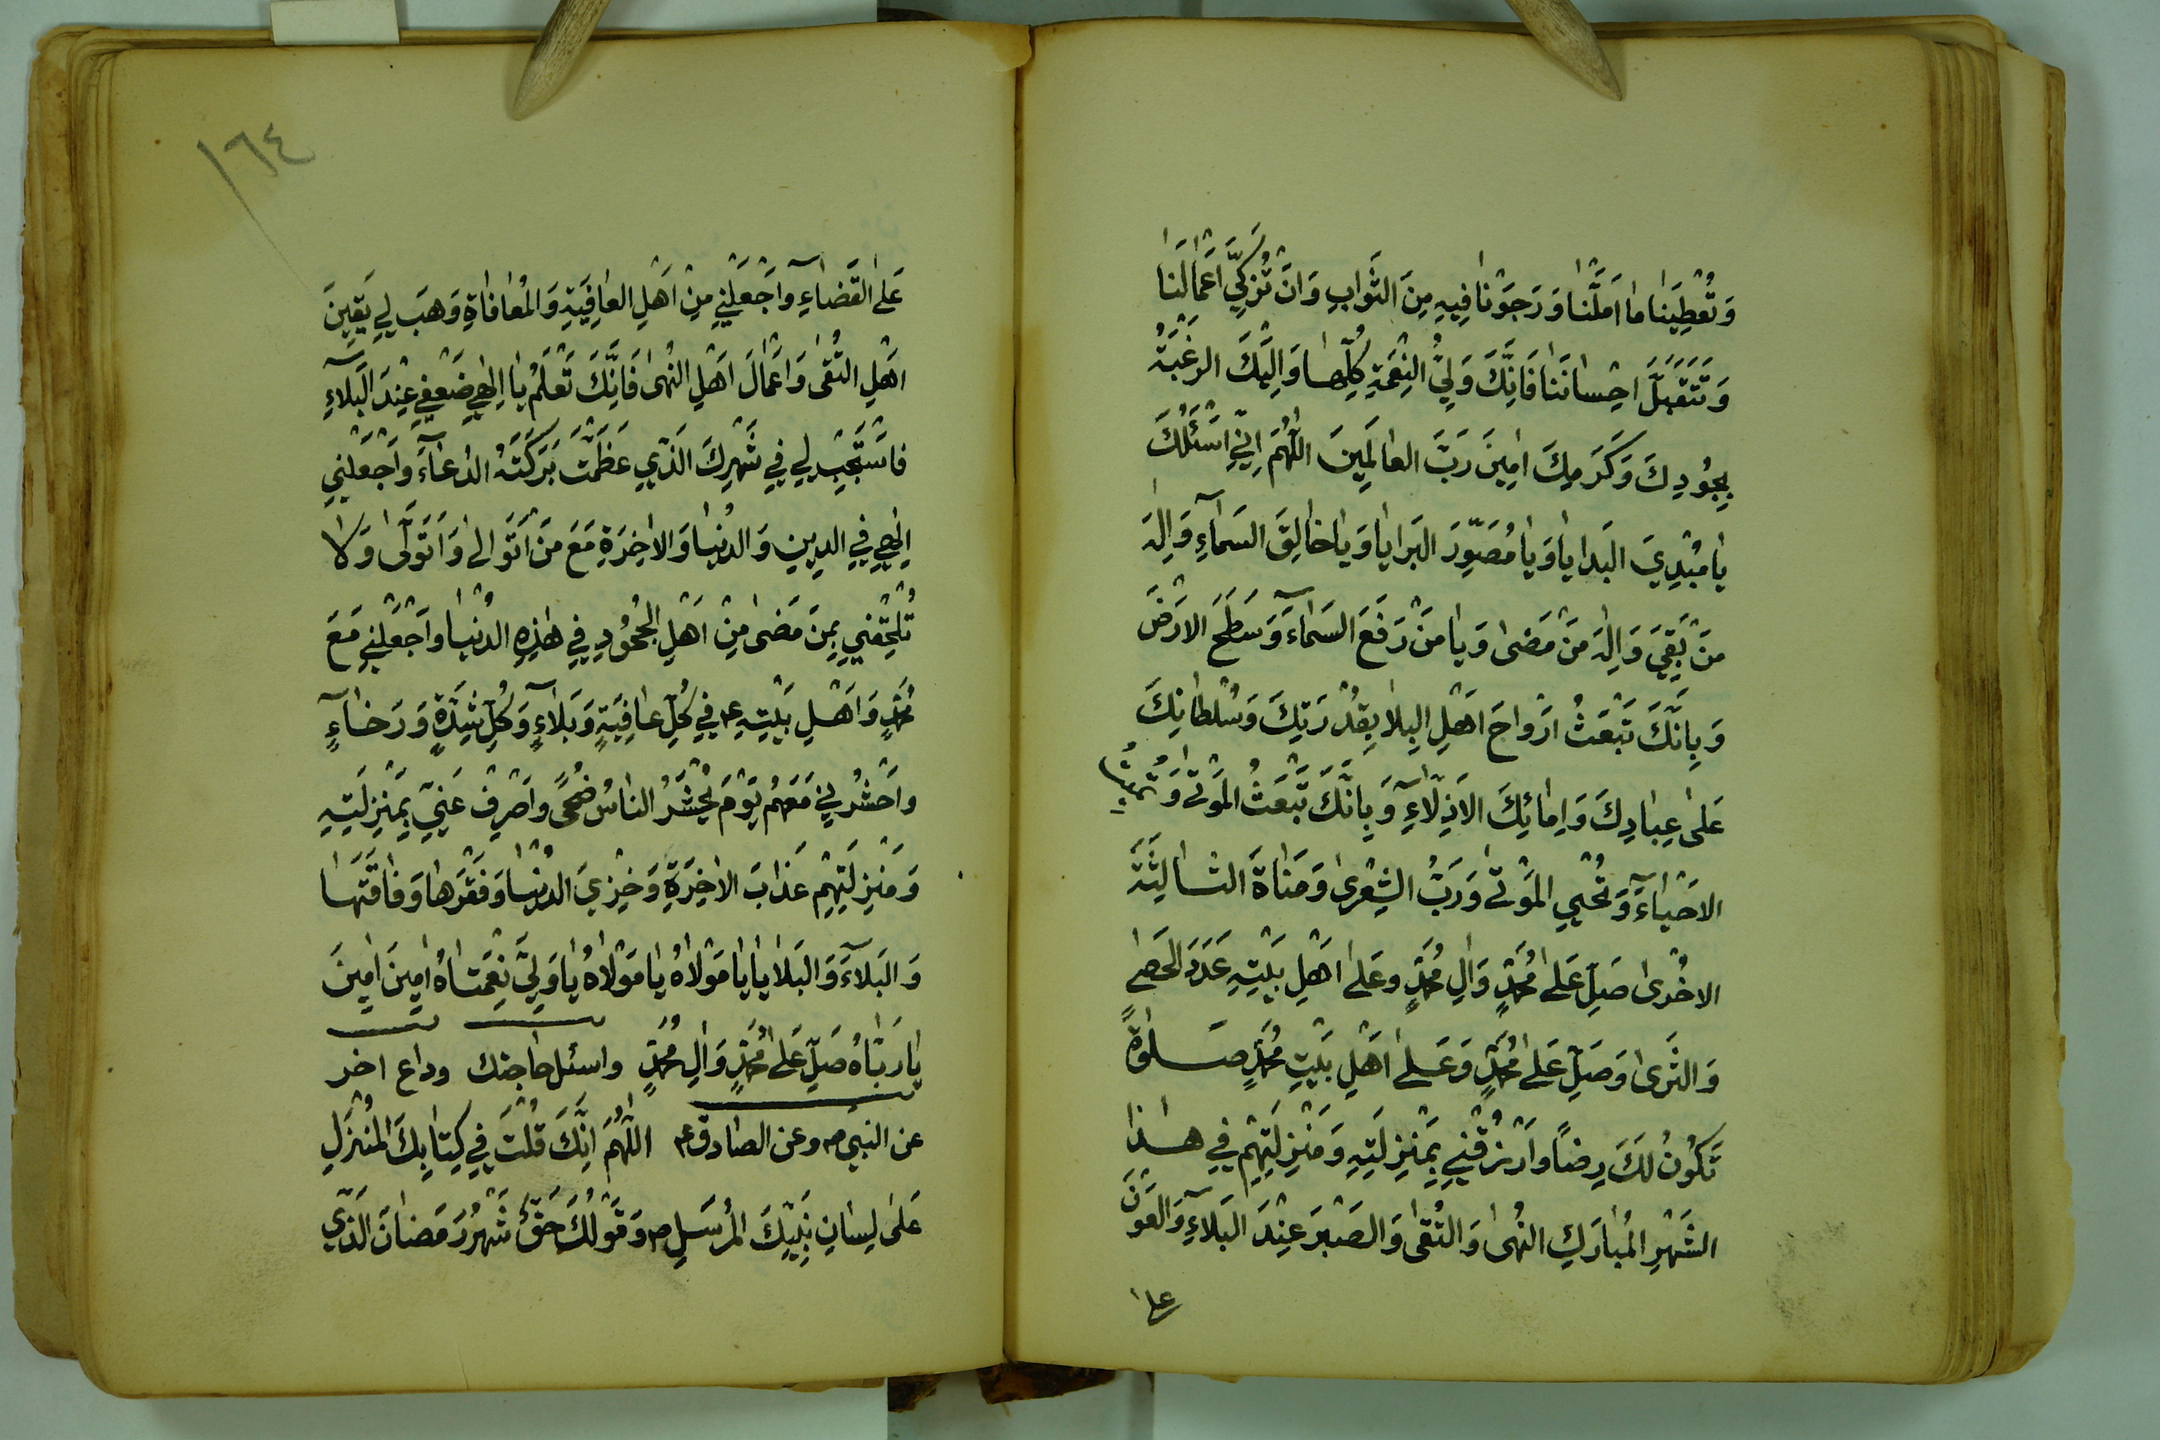 وَتُعْطِيَنا ما اَمَّلْنا وَرَجَوْنا فِيهِ مِنَ الثَّوابِ وَاَنْ تُزَكِّيَ اَعْمالَنا
وَتَتَقَبَّلَ اِحْسانَنا فَاِنَّكَ وَلِيُّ النِّعْمَةِ كُلِّها وَاِلَيْكَ الرَغْبَةُ
بِجُودِكَ وَكَرَمِكَ امِينَ رَبَّ العالَمِينَ اَللّٰهُمَّ اِنِّي اَسْئَلُكَ
يا مُبْدِيَ البَدايا وَيا مُصَوِّرَ البَرايا وَيا خالِقَ السَماءِ وَاِلٰهَ
مَنْ بَقِيَ وَاِلٰهَ مَنْ مَضىٰ وَيا مَنْ رَفَعَ السَماءَ وَسَطَحَ الاَرْضَ
وَبِاَنَّكَ تَبْعَثُ اَرْواحَ اَهْلِ البِلا بِقُدْرَتِكَ وَسُلْطانِكَ
عَلىٰ عِبادِكَ وَاِمائِكَ الاَذِلّاءِ وَبِاَنَّكَ تَبْعَثُ المَوْتىٰ وَتُمِيتُ
الاَحْياءَ وَتُحْيِي المَوْتىٰ وَرَبُّ الشِعْرىٰ وَمَناةَ الثالِثَةَ
الاُخْرىٰ صَلِّ عَلىٰ مُحَمَّدٍ وَالِ مُحَمَّدٍ وعَلىٰ اَهْلِ بَيْتِهِ عَدَدَ الحَصىٰ
وَالثَرىٰ وَصَلِّ عَلىٰ مُحَمَّدٍ وَعَلىٰ اَهْلِ بَيْتِ مُحَمَّدٍ صَلوٰةً
تَكُونُ لَكَ رِضًا وَارْزُقْنِي بِمَنْزِلَتِهِ وَمَنْزِلَتِهِمْ فِي هٰذا
الشَهْرِ المُبارَكِ النُهىٰ وَالتُقىٰ وَالصَبْرَ عِنْدَ البَلاءِ وَالعَوْنَ
على
١٦٤
عَلىٰ القَضاءِ وَاجْعَلْنِي مِنْ اَهْلِ العافِيَةِ وَالمُعافاةِ وَهَبْ لِي يَقِينَ
اَهْلِ التُقىٰ وَاَعْمالَ اَهْلِ النُهىٰ فَاِنَّكَ تَعْلَمُ يا اِلٰهِي ضَعْفِي عِنْدَ البَلاءِ
فاسْتَجِبْ لِي فِي شَهْرِكَ الَّذِي عَظَّمْتَ بَرَكَتَهُ الدُعاءَ وَاجْعَلْنِي
اِلٰهِي فِي الدِينِ وَالدُنْيا وَالاخِرَةِ مَعَ مَنْ اَتَوالىٰ وَاَتَوَلّىٰ وَلا
تُلْحِقْنِي بِمَنْ مَضىٰ مِنْ اَهْلِ الجُحُودِ فِي هٰذِهِ الدُنْيا وَاجْعَلْنِي مَعَ
مُحَمَّدٍ وَاَهْلِ بَيْتِهِ ع فِي كُلِّ عافِيَةٍ وَبَلاءٍ وَكُلِّ شِدَّةٍ وَرَخاءٍ
وَاحْشُرْنِي مَعَهُمْ يَوْمَ يُحْشَرُ الناسُ ضُحًى وَاصْرِفْ عَنِّي بِمَنْزِلَتِهِ
وَمَنْزِلَتِهِمْ عَذابَ الاخِرَةِ وَخِزْيَ الدُنْيا وَفَقْرَها وَفاقَتَها
وَالبَلاءَ وَالبَلايا يا مَوْلاهُ يا مَوْلاهُ يا وَلِيَّ نِعْمَتاهُ امِينَ امِينَ
يا رَبّاهُ صَلِّ عَلىٰ مُحَمَّدٍ وَالِ مُحَمَّدٍ واسئل حاجتك وداع اخر
عن النبي ص وعن الصادق ع اَللّٰهُمَّ اِنَّكَ قُلْتَ فِي كِتابِكَ المُنْزَلِ
عَلىٰ لِسانِ نَبِيِّكَ المُرْسَلِ ص وَقَوْلُكَ حَقٌّ شَهْرُ رَمَضانَ الَّذِي